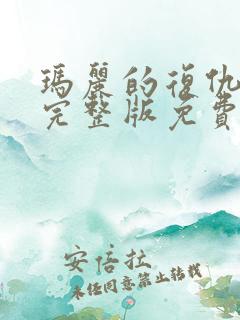 瑪麗的復仇
完整版免費
安倍扗
未经同意禁止转载